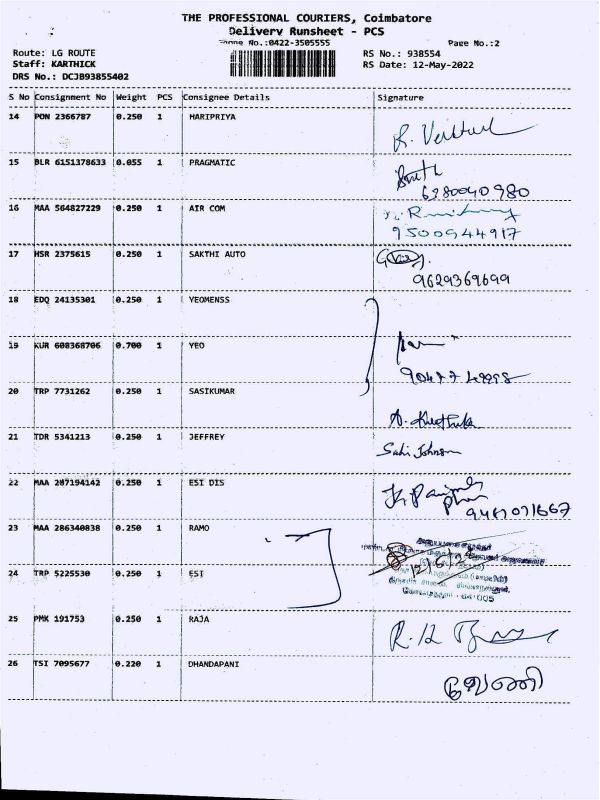 THE PROFESSIONAL COURIERS, Coimbatore
Delivery Runsheet - PCS
Phone No.:0422-3505555 Page No.:2
Route: LG ROUTE RS No.: 938554
Staff: KARTHICK RS Date: 12-May-2022
DRS No.: DCJB93855402
S No Consignment No Weight PCS Consignee Details Signature
14 PON 2366787 0.250 1 HARIPRIYA
15 BLR 6151378633 0.055 1 PRAGMATIC
6380040980
16 MAA 564827229 0.250 1 AIR COM
9500944917
17 HSR 2375615 0.250 1 SAKTHI AUTO
9629369699
18 EDQ 24135301 0.250 1 YEOMENSS
19 KUR 608368706 0.700 1 YEO
20 TRP 7731262 0.250 1 SASIKUMAR
21 TDR 5341213 0.250 1 JEFFREY
Johnson
22 MAA 287194142 0.250 1 ESI DIS
23 MAA 286340838 0.250 1 RAMO
24 TRP 5225530 0.250 1 ESI
25 PMK 191753 0.250 1 RAJA
26 TSI 7095677 0.220 1 DHANDAPANI